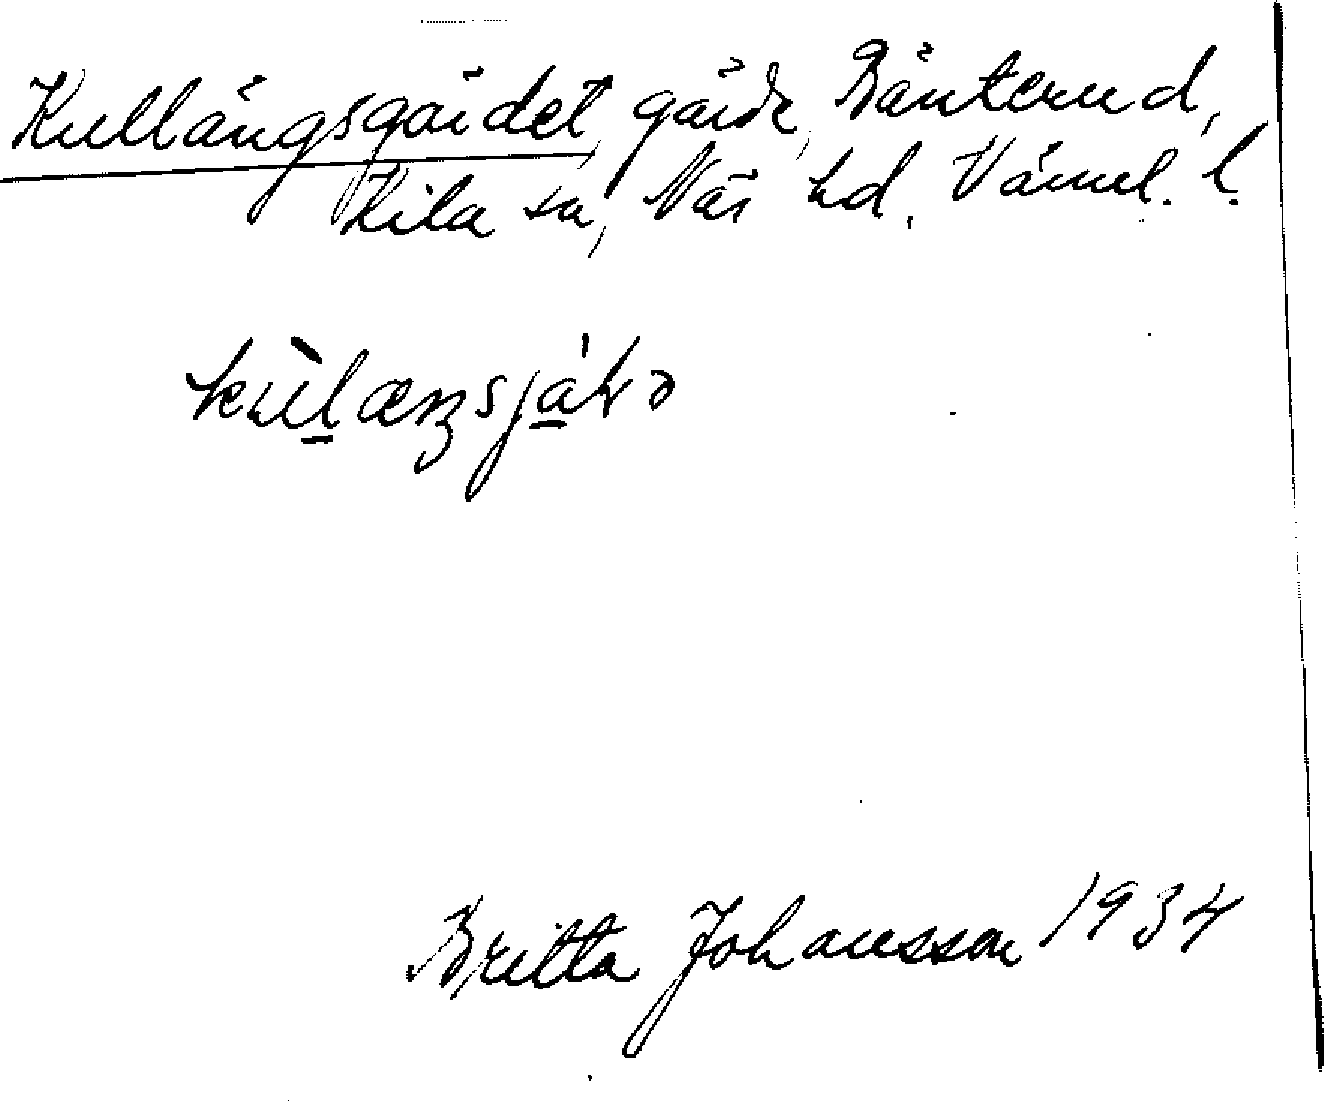 Kullängsgärdet, gärde, Bänterud,
Kila sn, Näs hd, Värml. l.
kùl̠æŋsjá̠ɽə
Britta Johansson 1934